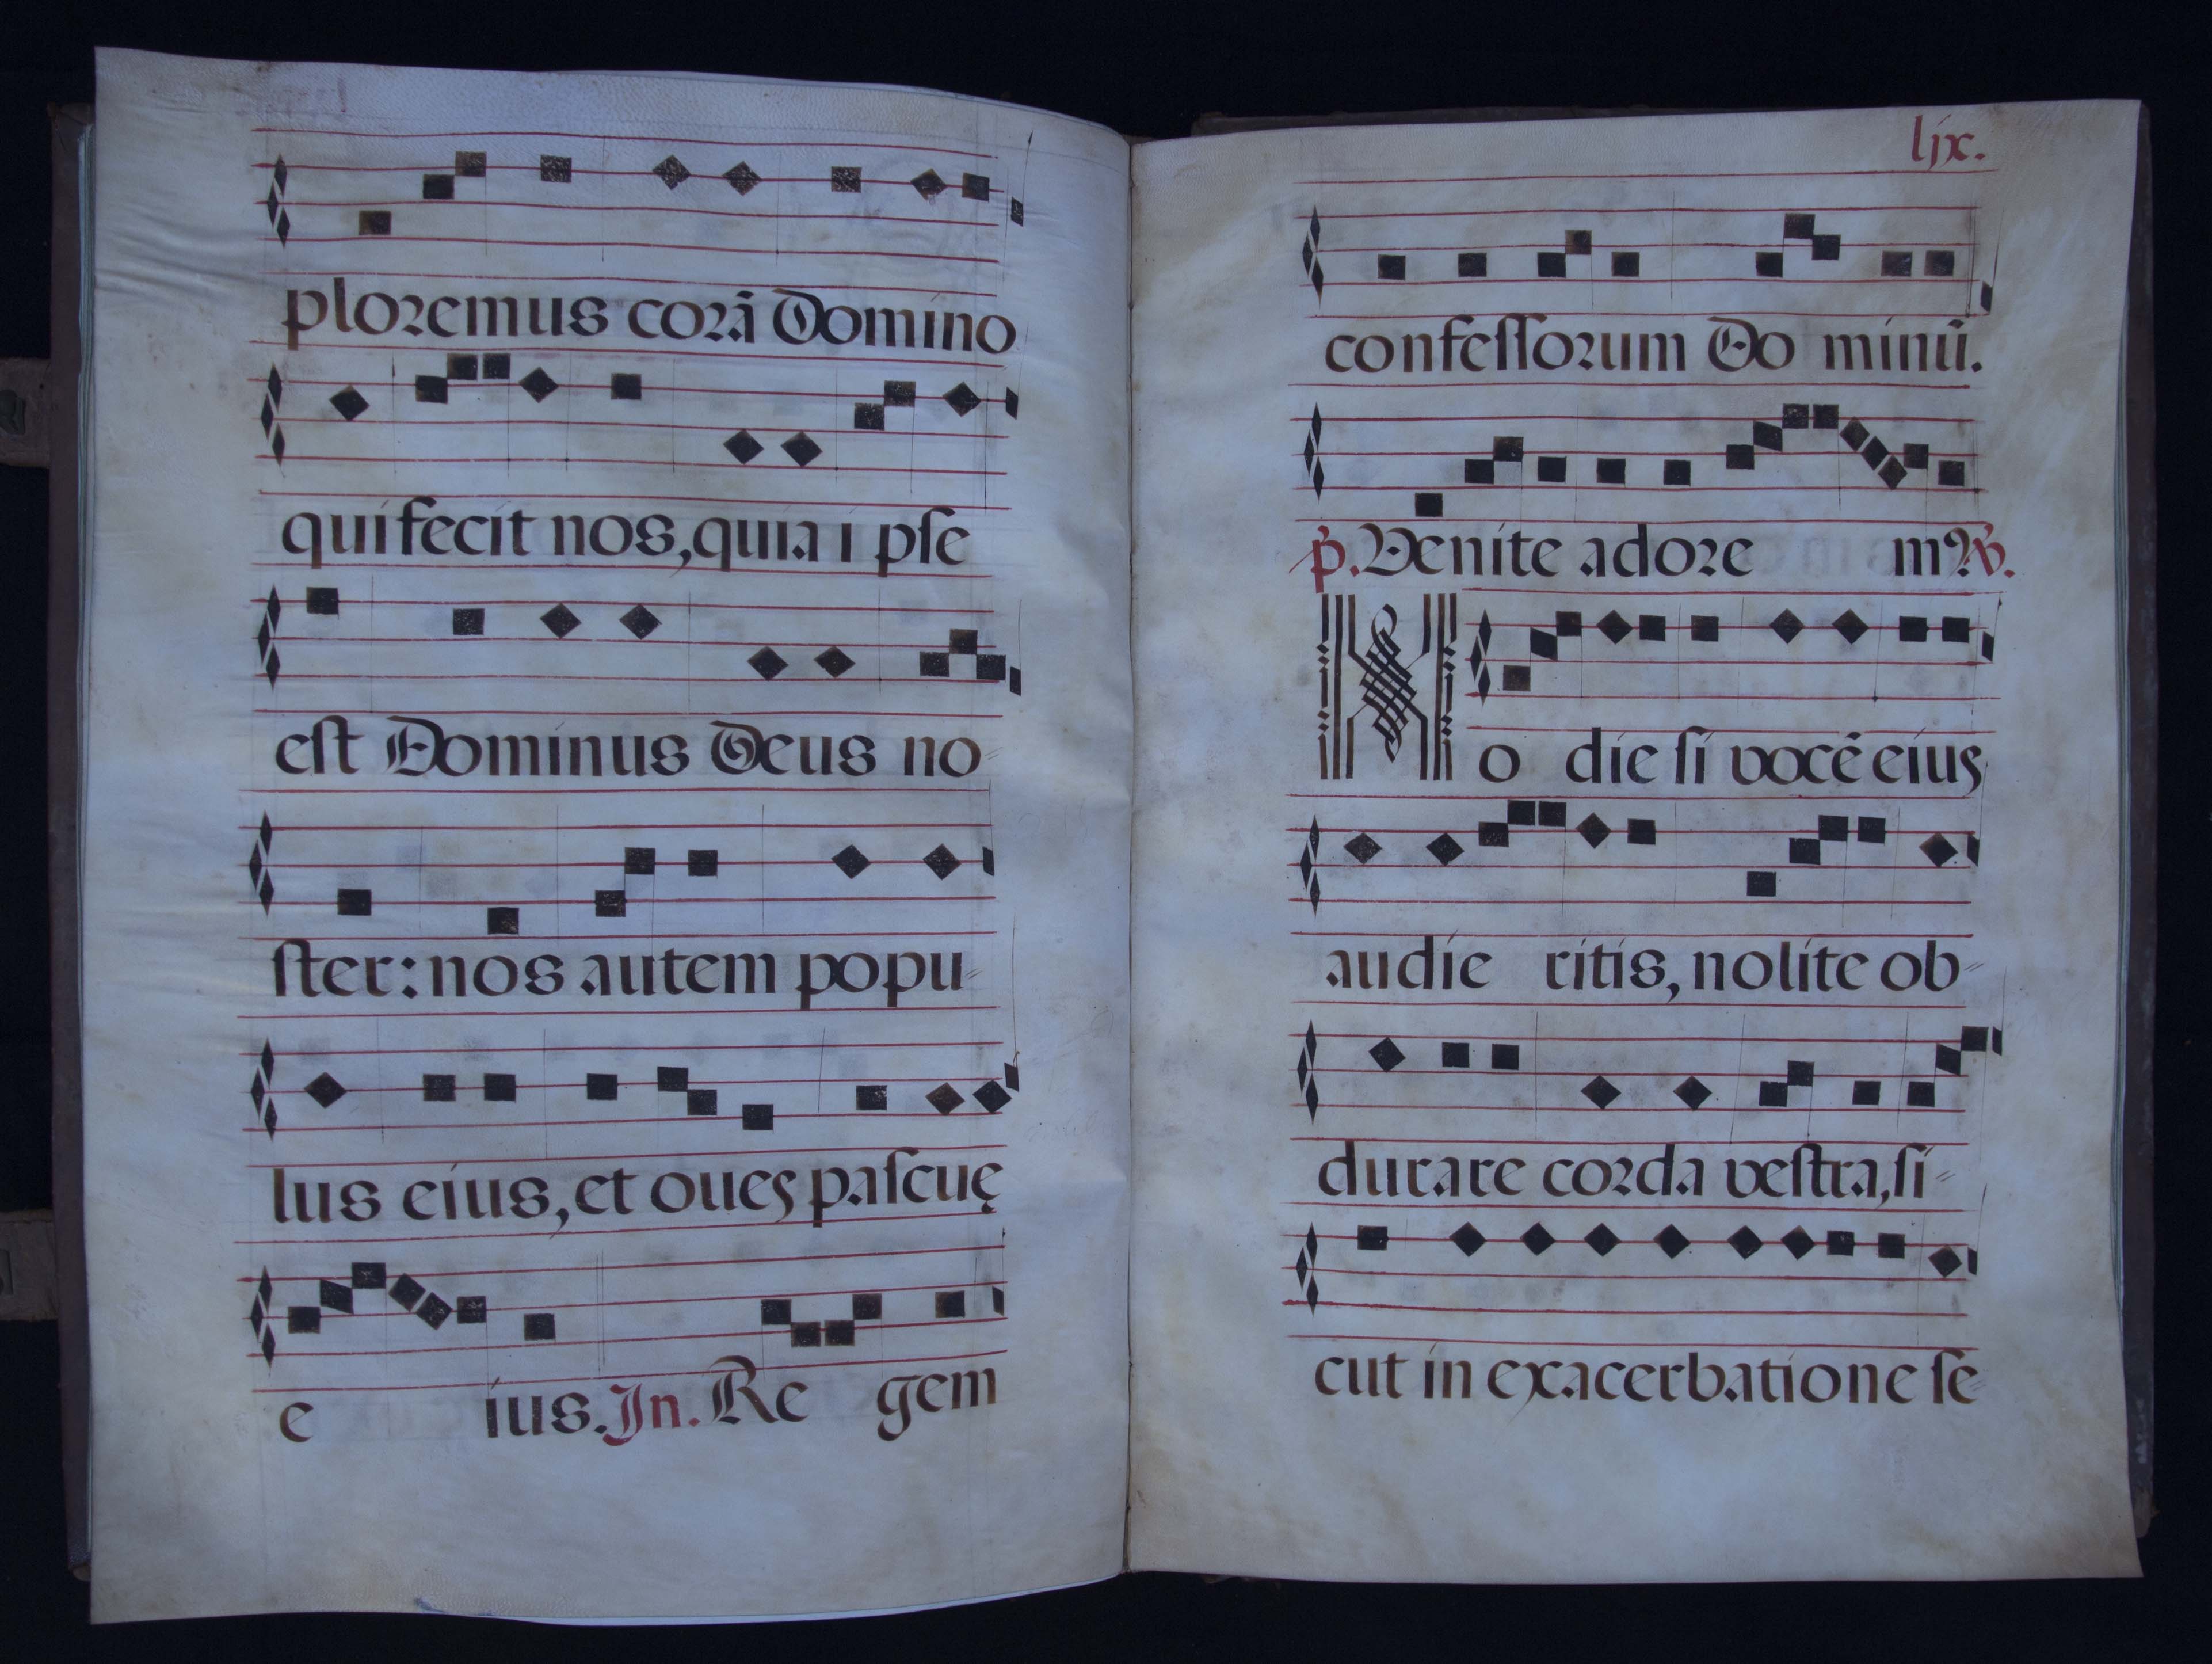 ploremus corā Domino
qui fecit nos, quia i pſe
eſt Dominus Deus no-
ſter: nos autem popu-
lus eius, et oues paſcuę
e ius. In. Re gem
ljx.
confeſſorum Do minū.
p̄. Venite adore mꝰ. ℣.
Ho die ſi vocē eius
audie ritis, nolite ob-
durare corda veſtra, ſi-
cut in exacerbatione ſe